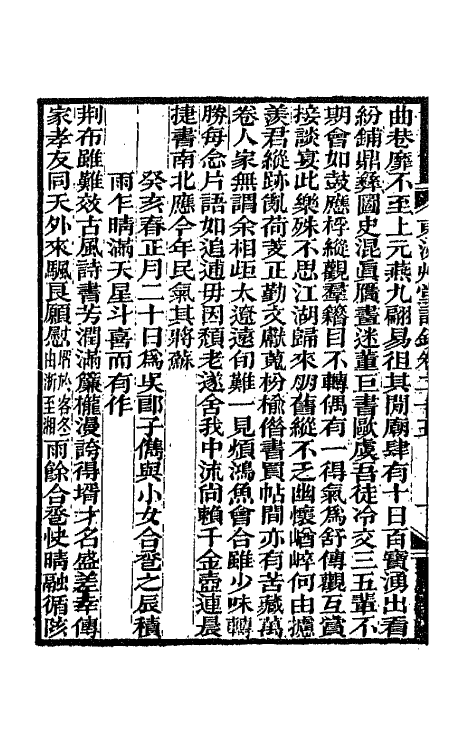 曲巷靡不至上元燕九翩易徂其閒廟肆有十日百寶湧出看
紛鋪鼎彝圖史混眞贋畫迷董巨書歐虞吾徒冷交三五輩不
期會如鼓應桴縱觀羣籍目不轉偶有一得氣爲舒傳觀互賞
接談宴此樂殊不思江湖歸來朋舊縱不乏幽懷崷崪何由攄
羨君縱跡亂荷芰正勤文獻蒐枌榆借書買帖間亦有苦藏萬
卷人家無調余相歫太遼遠旬難一見煩鴻魚會合雖少味轉
勝每念片語如追逋毋因頹老遂舍我中流尙賴千金壺連晨
捷書南北應今年民氣其將蘇
癸亥春正月二十日爲吳郎子儁與小女合巹之辰積
雨乍晴滿天星斗喜而有作
荆布雖難效古風詩書芳潤滿簾櫳漫誇得壻才名盛差幸傳
家孝友同天外來颿良願慰壻於客冬由浙至湘雨餘合巹快晴融循陔
東洲艸堂詩鈔卷二十五